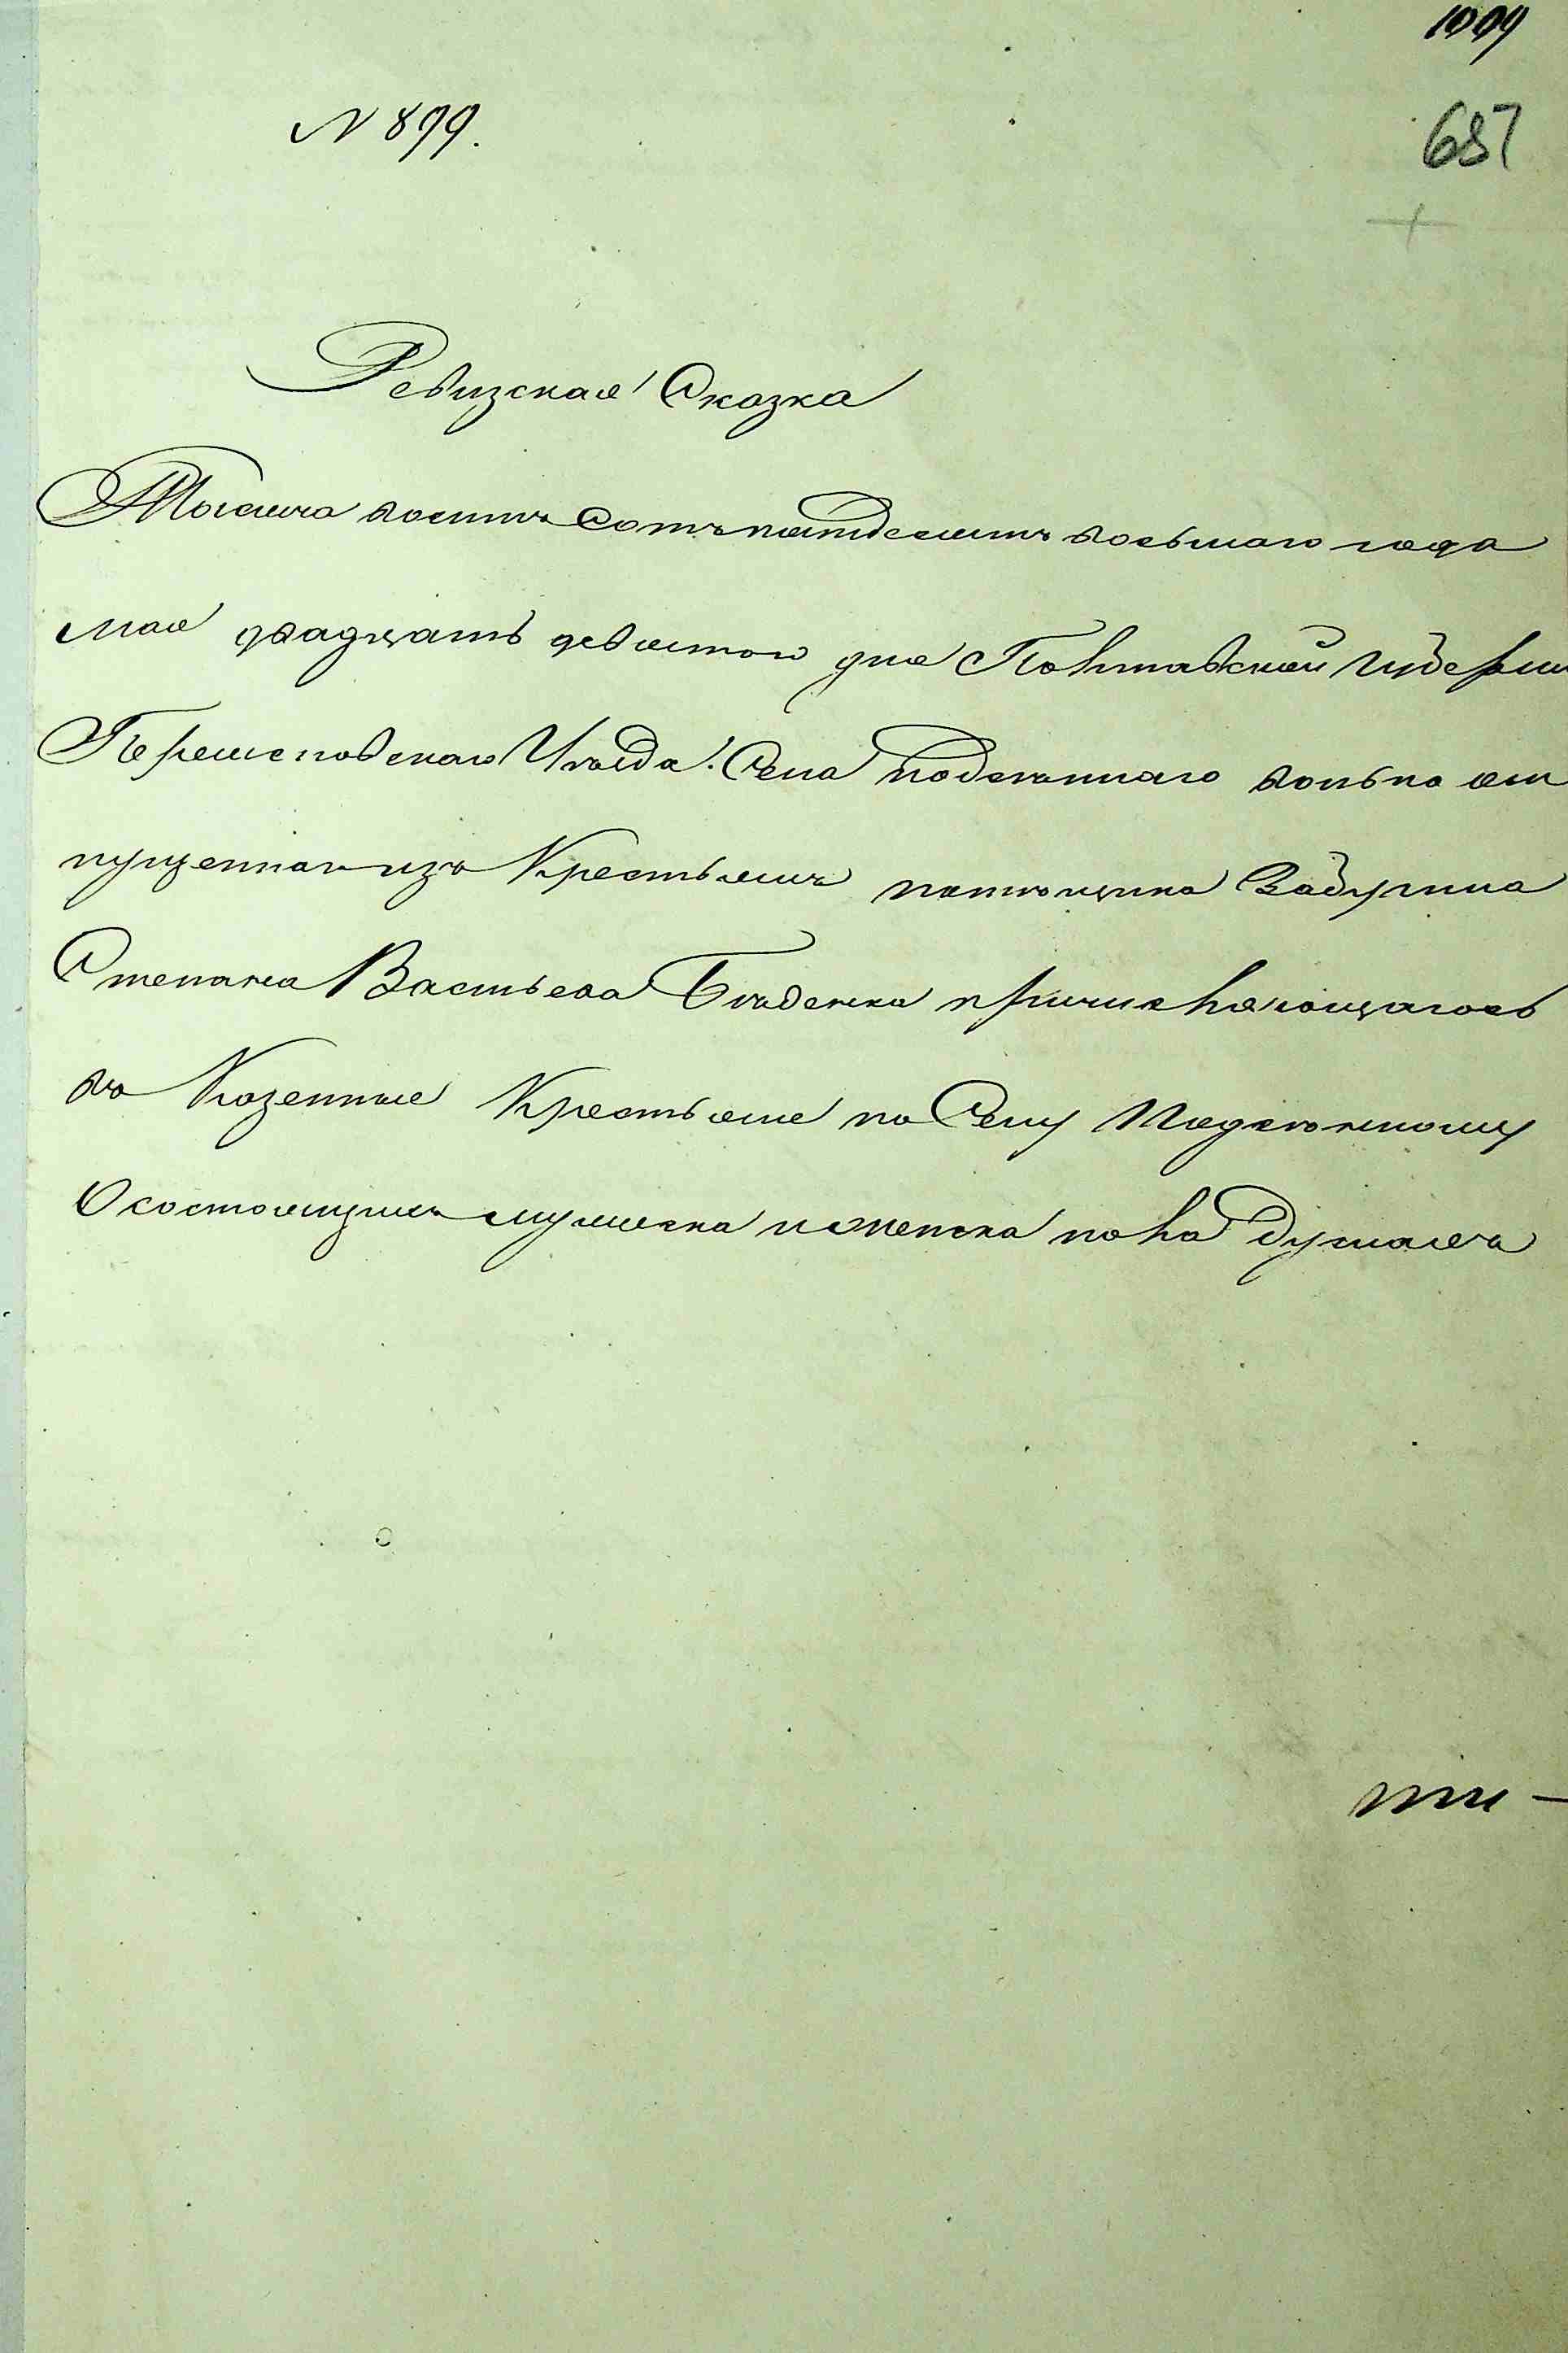 1009
N 899.
687
Ревизская Сказка
Тысяча восемъ Сотъ пятдесятъ восьмаго года
мая двадцать девятого дня Полтавской Губерни
Переяславскаго Уѣзда. Села Подсѣннаго вольно от
пущеннаго изъ Крестьянъ помѣщика
Степана Васильева причисляющагося
въ Казенные Крестьяне по Селу Подсѣнному
О состоящихъ мужеска и женска пола душахъ